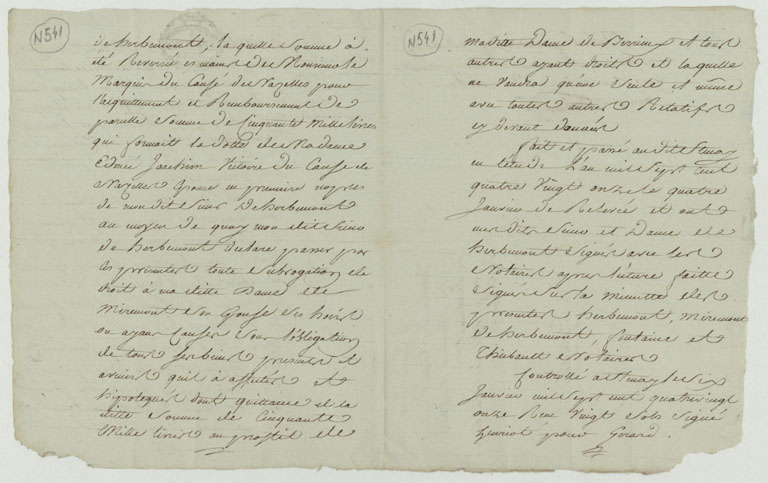 N541
de herbemont, la quelle Somme à
été Reversée es mains de Monsieur le
Marquis du Causé de Nazelles pour
l'acquittement et Remboursement de
pareille Somme de Cinquante Mille livres
qui formoit la dotte de Madame
Edmé Joachim Victoire du Causé de
Nazelle Epouse en premiere nopces
de mondit Sieur De herbemont
au moyen de quoy mon dit Sieur
de herbemont declare passer par
les presentes toute Subrogation de
droit à ma ditte Dame de
Miremont Son Epouse Ses hoirs
ou ayans Causes Sous l'obligation
de tous Ses biens presents et
avenir qu'il à affecté et
hipotequés dont quittance de la
ditte Somme de Cinquante
Mille livres au proffit de
N541
maditte Dame de et tous
autres ayant droits et la quelle
ne Vaudra qu'une Seule et même
avec toutes autres Relatifs
cy devant donnés
fait et passé audit Stenay
en l'etude L'an mil Sept Cent
quatre Vingt onze le quatre
Janvier de Relevée et ont
mesdits Sieur et Dame de
herbemont Signés avec les
Notaires apres lecture faitte
Signés Sur la minutte des
presentes herbemont, Miremont
de herbemont, fontaine et
Thiebault Notaires
Controllé a Stenay le Six
Janvier mil Sept cent quatrevingt
onze Reçu Vingt Sols Signé
henriot pour Gerard.